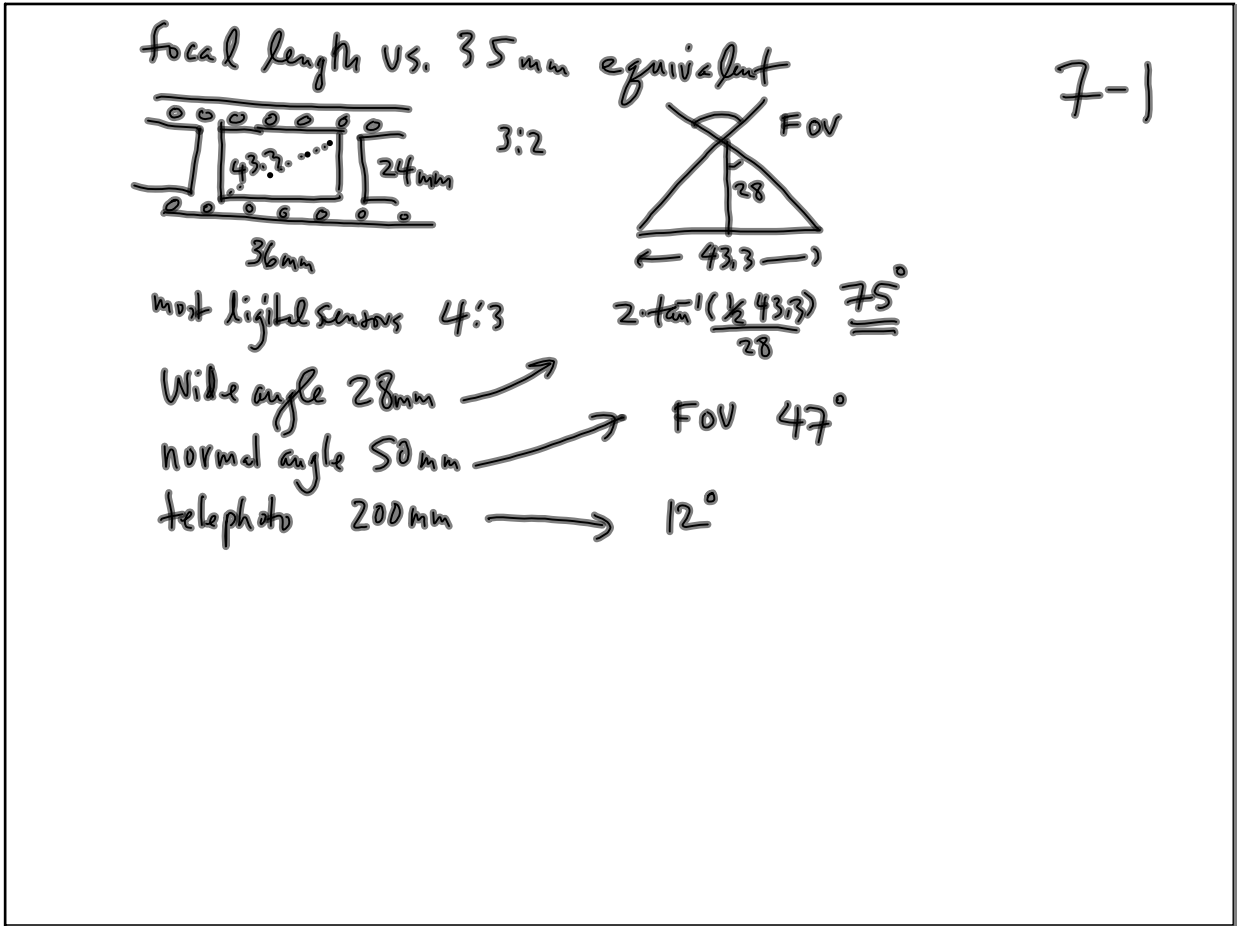 focal length vs. 35mm equivalent
7-1
43.3
24mm
36mm
3:2
FOV
28
43.3
most digital sensors 4:3
2·tan⁻¹(½ 43.3)
28
75°
Wide angle 28mm
normal angle 50mm
FOV 47°
telephoto 200mm
12°